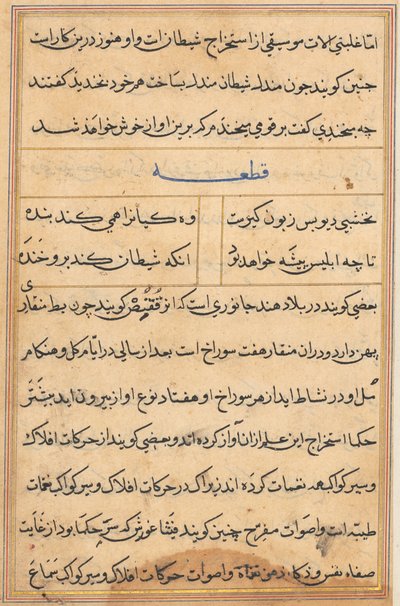 اما غلبتی الات موسیقی از استخراج شیطان است و او هنوز درین کار است
چنین کویند چون مندل شیطان مندل بساخت هر خود نخندید کفتند
چه میخندی کفت بر قومی میخندم که برین اواز خوش خواهد شد
قطعه
نخشبی دیو بس زبون کیرست
وه کیانراهی کند بنده
تا چه ابلیس پیشه خواهد بود
انکه شیطان کند برو خنده
بعضی کویند در بلاد هند جانوری است که انرا ققنس کویند چون بط منقاری
پهن دارد و دران منقار هفت سوراخ است بعد از سالی در ایام کل و هنکام
مل و در نشاط اید از هر سوراخ او هفتاد نوع اواز بیرون اید بیشتر
حکما استخراج این علم ازان آواز کرده اند و بعضی کویند از حرکات افلاک
و سیر کواکب نغمات کرده اند زیراک در حرکات افلاک و سیر کواکب نغمات
طیبه است و اصوات مفرح چنین کویند فیثاغورش که سر حکما بود از غایت
صفاء نفس و ذکاء ذهن نغمات و اصوات حرکات افلاک و سیر کواکب سماع